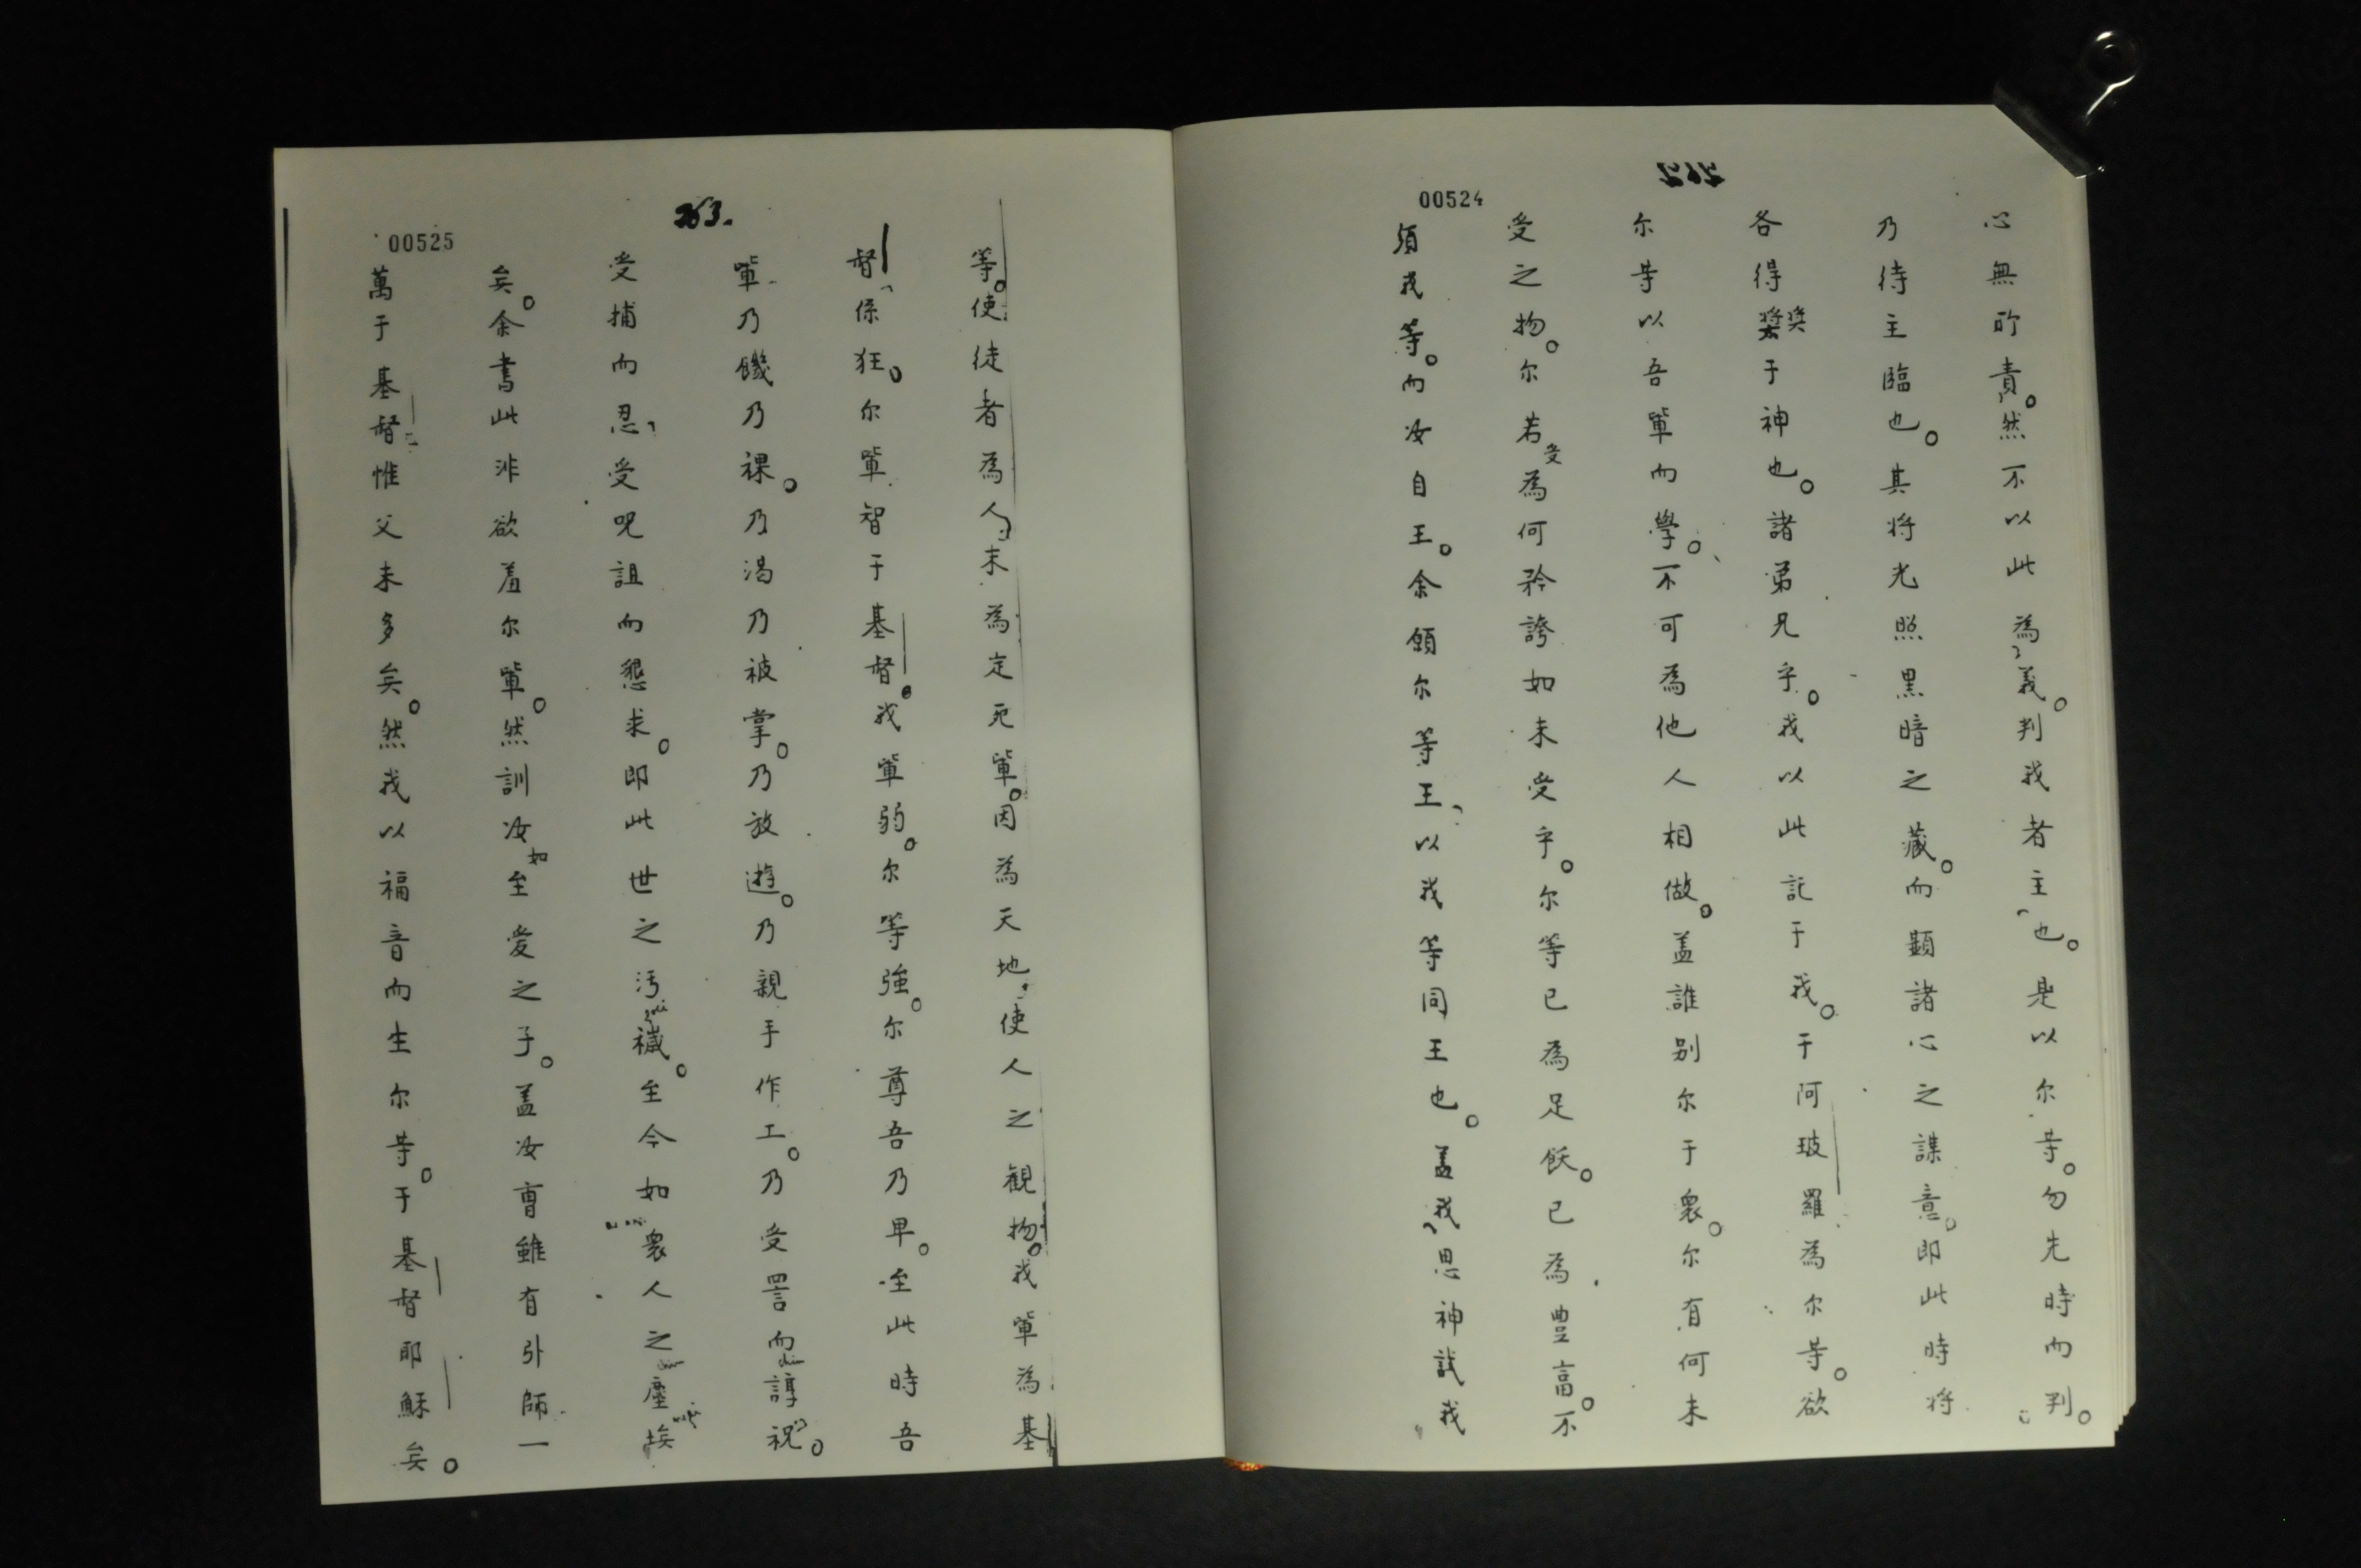 00524
心無所責。然不以此為義。判我者主也。是以尔等。勿先時而判。
乃待主臨也。其将光照黑暗之藏。而顯諸心之謀意。即此時将
各得奬于神也。諸弟兄乎。我以此託于我。于阿玻羅為尔等。欲
尔等以吾軰而學。不可為他人相做。盖誰别尔于衆。尔有何未
受之物。尔若受為何矜誇如未受乎。尔等已為足飫。已為豊富。不
須我等。而汝自王。余願尔等王、以我等同王也。盖我思神試我
263.
00525
等。使徒者為人末為定死軰。因為天地使人之観物。我軰為基
督係狂。尔軰智于基督。我軰弱。尔等強。尔尊吾乃卑。至此時吾
軰乃饑乃裸。乃渴乃被掌。乃放遊。乃親手作工。乃受詈而諄祝。
受捕而忍、受呪詛而懇求。即此世之汚穢。至今如衆人之塵埃
矣。余書此非欲羞尔軰。然訓汝如至愛之子。盖汝曹雖有引師一
萬于基督惟父未多矣。然我以福音而生尔等。于基督耶穌矣。